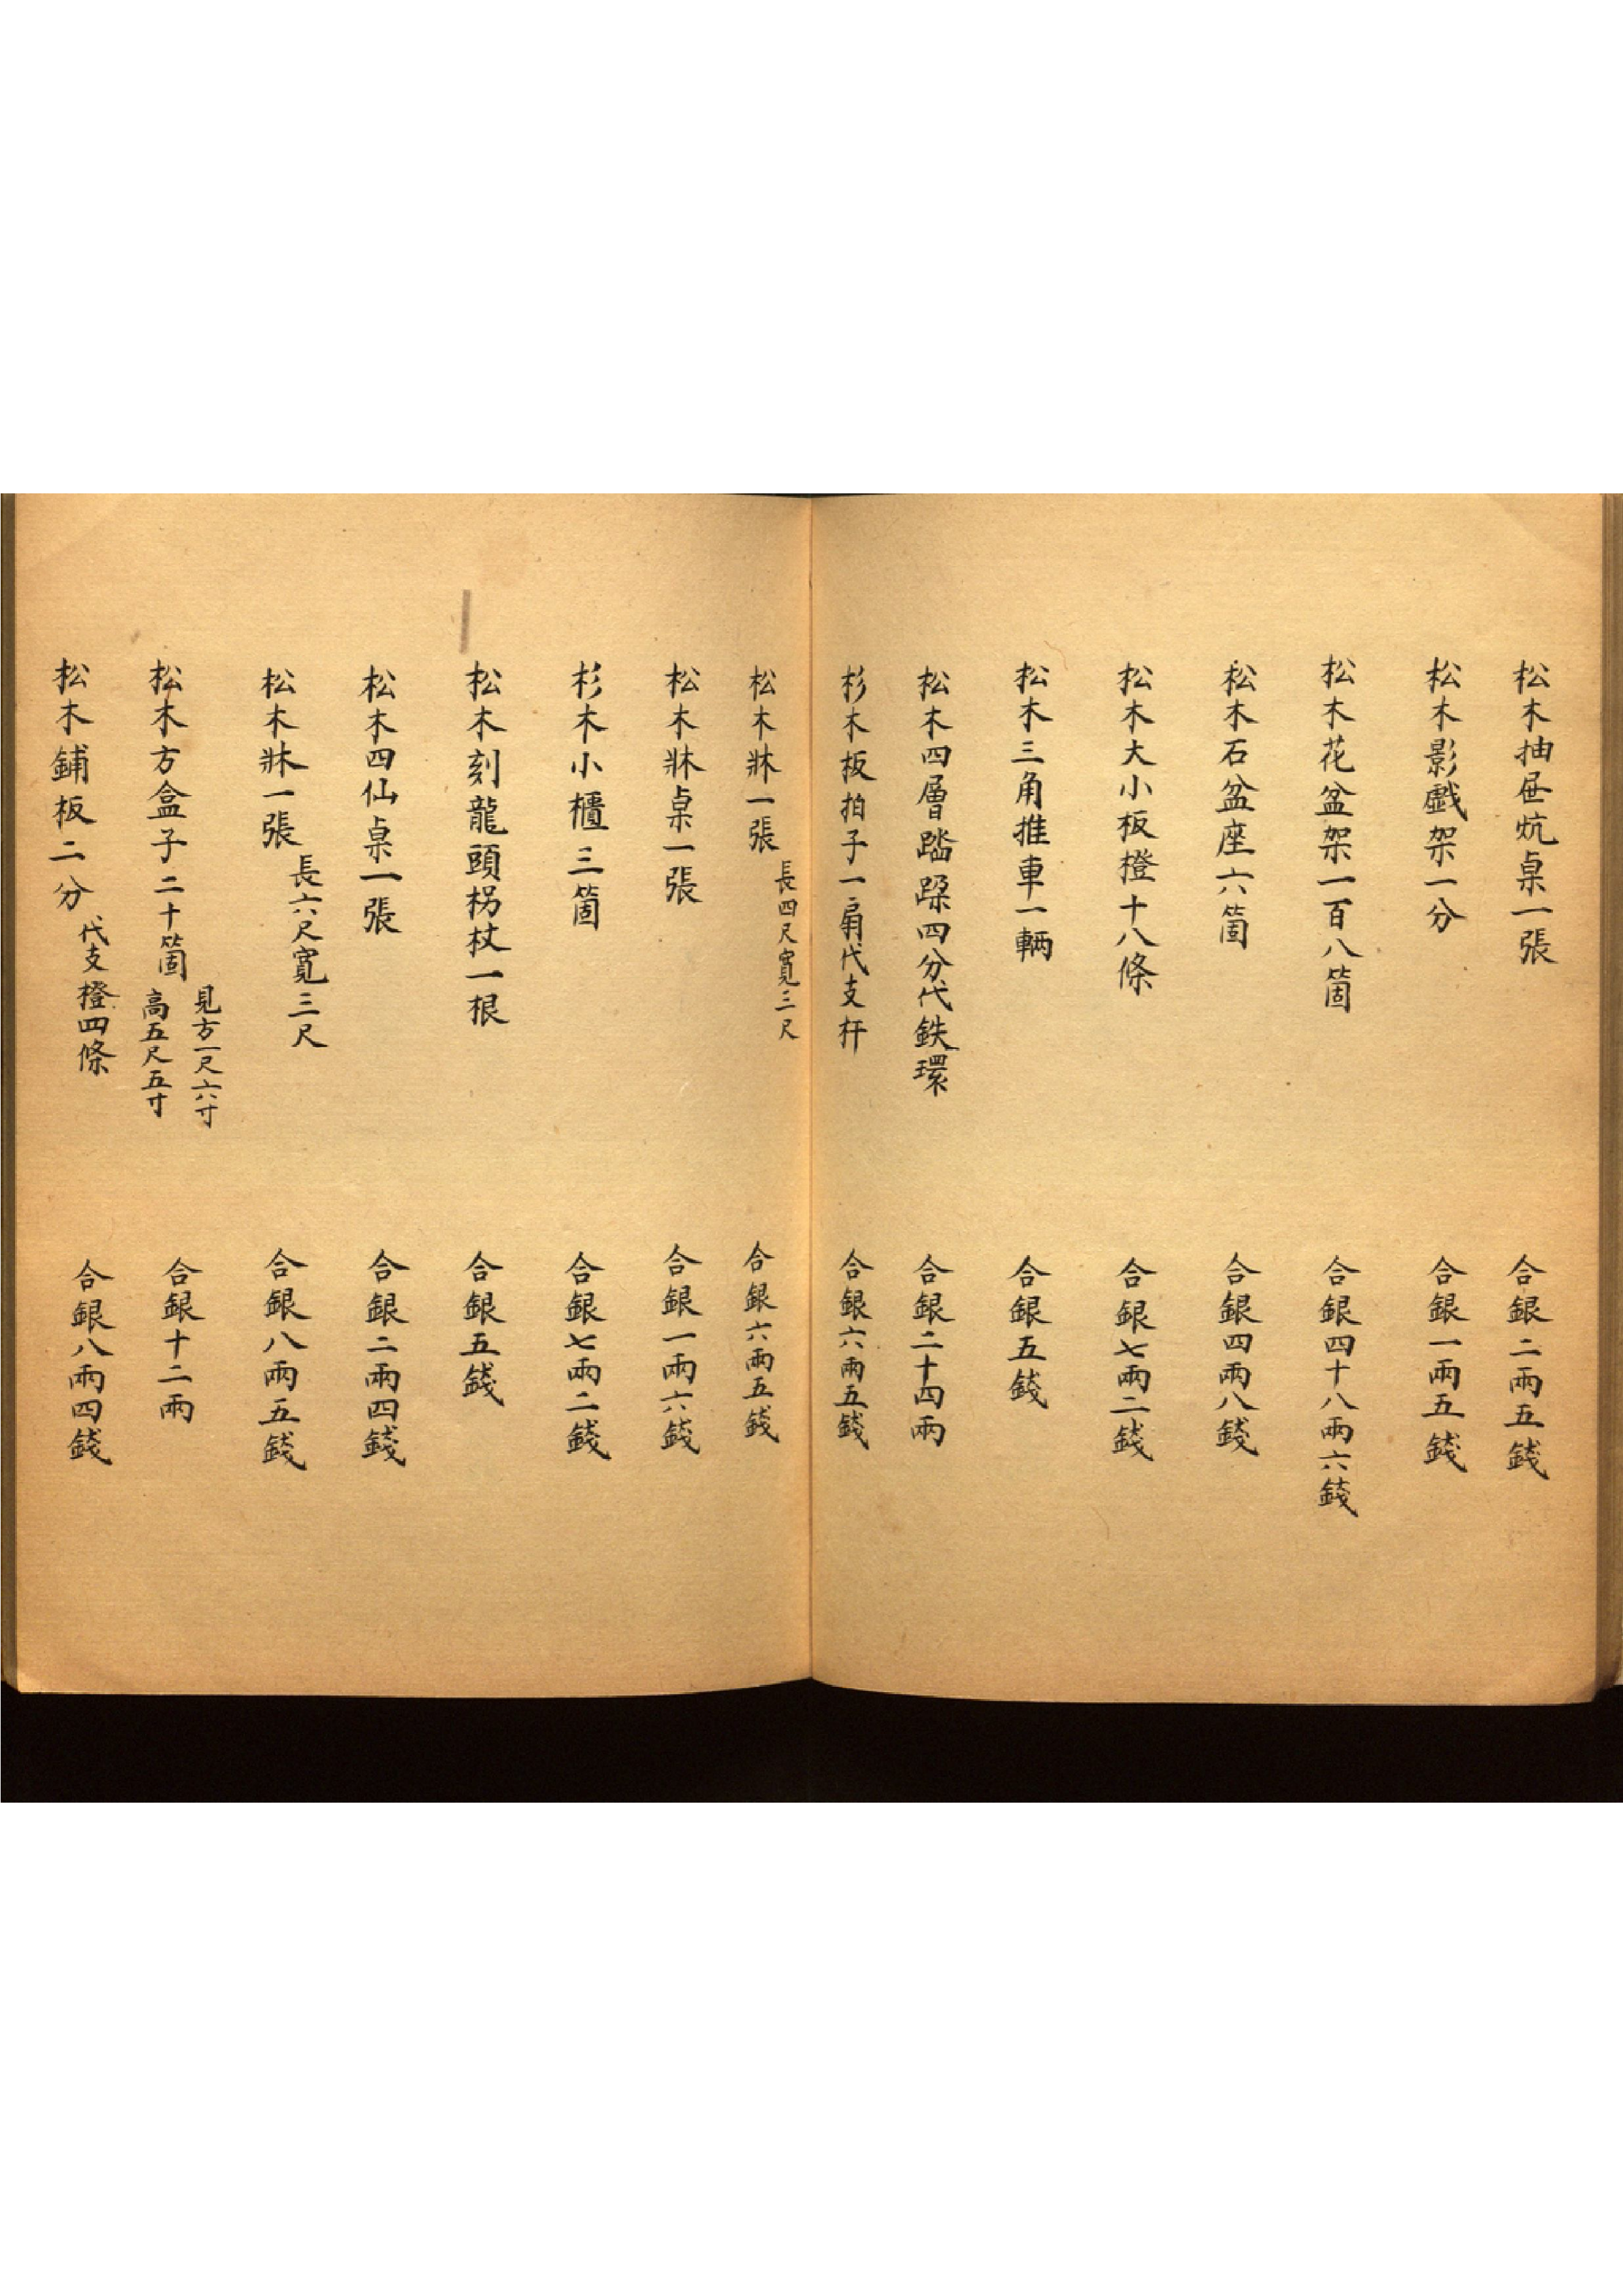 松木抽屉炕桌一張 合銀二兩五錢
松木影戲架一分 合銀一兩五錢
松木花盆架一百八箇 合銀四十八兩六錢
松木石盆座六箇 合銀四兩八錢
松木大小板橙十八條 合銀七兩二錢
松木三角推車一輛 合銀五錢
松木四層踏跺四分代鉄環 合銀二十四兩
杉木板拍子一扇代支杆 合銀六兩五錢
松木牀一張 長四尺寬三尺 合銀六兩五錢
松木牀桌一張 合銀一兩六錢
杉木小櫃三箇 合銀七兩二錢
松木刻龍頭柺杖一根 合銀五錢
松木四仙桌一張 合銀二兩四錢
松木牀一張 長六尺寬三尺 合銀八兩五錢
松木方盒子二十箇 見方一尺六寸 高五尺五寸 合銀十二兩
松木鋪板二分 代支橙四條 合銀八兩四錢